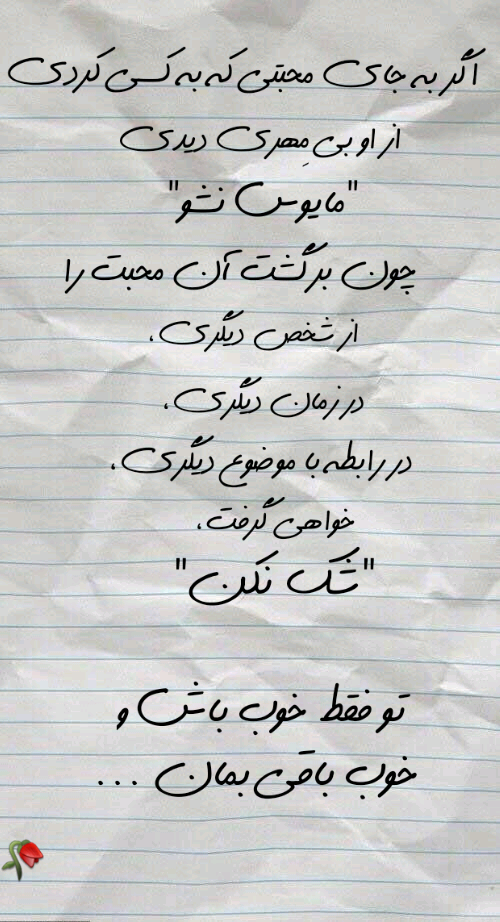 اگر به جای محبتی که به کسی کردی
از او بی مِهری دیدی
"مایوس نشو"
چون برگشت آن محبت را
از شخص دیگری،
در زمان دیگری،
در رابطه با موضوع دیگری،
خواهی گرفت،
"شک نکن"
تو فقط خوب باش و
خوب باقی بمان ...